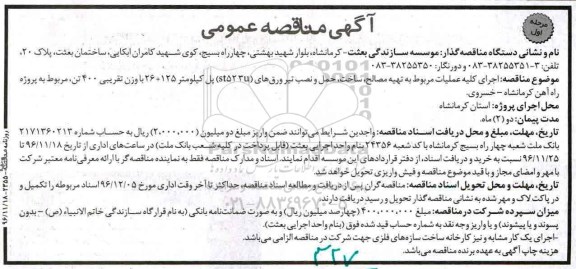 مرحله اول
آگهی مناقصه عمومی
نام و نشانی دستگاه مناقصه گذار: موسسه سازندگی بعثت- کرمانشاه، بلوار شهید بهشتی، چهارراه بسیج، کوی شهید کامران ابکایی، ساختمان بعثت، پلاک ۲۰،
تلفن: ۳-۳۸۲۵۵۳۵۱-۰۸۳ و دورنگار: ۳۸۲۵۵۳۵۰-۰۸۳
موضوع مناقصه: اجرای کلیه عملیات مربوط به تهیه مصالح، ساخت، حمل و نصب تیر ورق‌های (st52 3u) پل کیلومتر ۱۲۵+۲۶ با وزن تقریبی ۴۰۰ تن، مربوط به پروژه
راه آهن کرمانشاه - خسروی.
محل اجرای پروژه: استان کرمانشاه
مدت پیمان: دو (۲) ماه.
تاریخ، مهلت، مبلغ و محل دریافت اسناد مناقصه: واجدین شرایط می‌توانند ضمن واریز مبلغ دو میلیون (۲،۰۰۰،۰۰۰) ریال به حساب شماره ۲۱۷۱۳۶۰۲۱۳
بانک ملت شعبه چهار راه بسیج کرمانشاه با کد شعبه ۲۴۳۵۶ بنام واحد اجرایی بعثت (قابل پرداخت در کلیه شعب بانک ملت) در ساعت‌های اداری از تاریخ ۹۶/۱۱/۱۸ تا
۹۶/۱۱/۲۵ نسبت به خرید و دریافت اسناد، از دفتر قراردادهای این موسسه اقدام نمایند. اسناد و مدارک مناقصه فقط به نماینده مناقصه گر با ارائه معرفی‌نامه معتبر شرکت
با مهر و امضای مجاز و با قید موضوع مناقصه و فیش واریزی تحویل خواهد شد.
تاریخ، مهلت و محل تحویل اسناد مناقصه: مناقصه گران پس از دریافت و مطالعه اسناد مناقصه، حداکثر تا آخر وقت اداری مورخ ۹۶/۱۲/۰۵ اسناد مربوطه را تکمیل و
در پاکت لاک و مهر شده به نشانی مناقصه گذار تحویل و رسید دریافت دارند.
میزان سپرده شرکت در مناقصه: مبلغ ۴۰۰،۰۰۰،۰۰۰ (چهارصد میلیون ریال) و به صورت ضمانت‌نامه بانکی (به نام قرارگاه سازندگی خاتم الانبیاء (ص) - بدون
پسوند و یا پیشوند) و یا واریز وجه نقد به شماره حساب قید شده فوق (بنام واحد اجرایی بعثت).
-اجرای یک کار مشابه و نیز کارخانه ساخت سازه‌های فلزی جهت شرکت در مناقصه الزامی می‌باشد.
هزینه چاپ آگهی به عهده برنده مناقصه می‌باشد.
۳۲۷